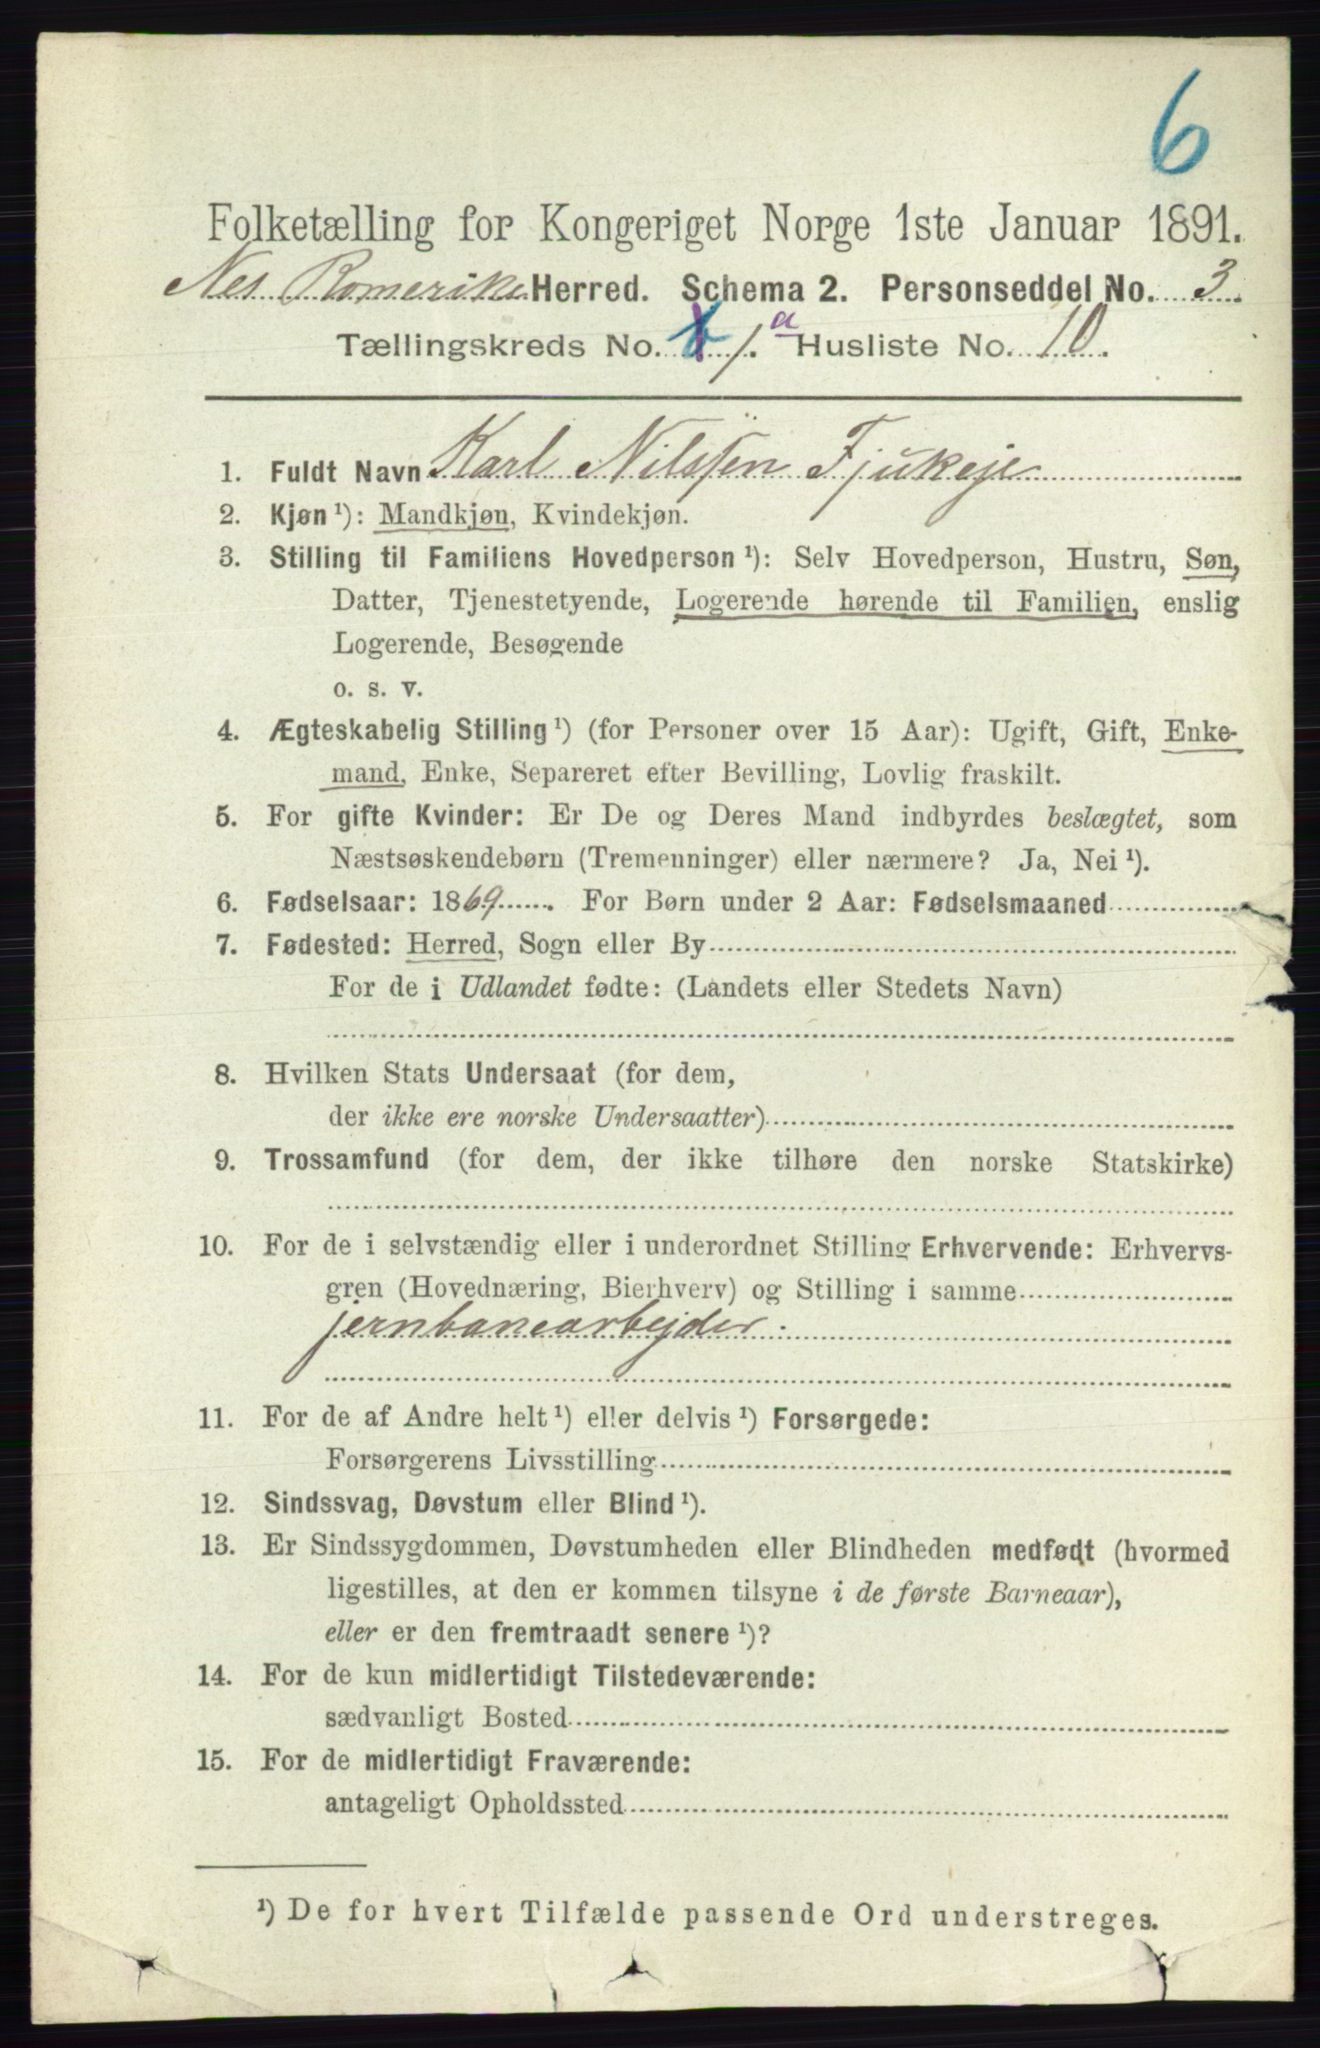 6
Folketælling for Kongeriget Norge 1ste Januar 1891.
Nes Romerike Herred. Schema 2. Personseddel No. 3.
Tællingskreds No. 1.a Husliste No. 10.
1. Fuldt Navn Karl Nilssen Fjukeje
2. Kjøn¹): Mandkjøn, Kvindekjøn.
3. Stilling til Familiens Hovedperson¹): Selv Hovedperson, Hustru, Søn,
Datter, Tjenestetyende, Logerende hørende til Familien, enslig
Logerende, Besøgende
o. s. v.
4. Ægteskabelig Stilling¹) (for Personer over 15 Aar): Ugift, Gift, Enke-
mand, Enke, Separeret efter Bevilling, Lovlig fraskilt.
5. For gifte Kvinder: Er De og Deres Mand indbyrdes beslægtet, som
Næstsøskendebørn (Tremenninger) eller nærmere? Ja, Nei¹).
6. Fødselsaar: 1869. For Børn under 2 Aar: Fødselsmaaned
7. Fødested: Herred, Sogn eller By
For de i Udlandet fødte: (Landets eller Stedets Navn)
8. Hvilken Stats Undersaat (for dem,
der ikke ere norske Undersaatter)
9. Trossamfund (for dem, der ikke tilhøre den norske Statskirke)
10. For de i selvstændig eller i underordnet Stilling Erhvervende: Erhvervs-
gren (Hovednæring, Bierhverv) og Stilling i samme
jernbanearbejder.
11. For de af Andre helt¹) eller delvis¹) Forsørgede:
Forsørgerens Livsstilling
12. Sindssvag, Døvstum eller Blind¹).
13. Er Sindssygdommen, Døvstumheden eller Blindheden medfødt (hvormed
ligestilles, at den er kommen tilsyne i de første Barneaar),
eller er den fremtraadt senere¹)?
14. For de kun midlertidigt Tilstedeværende:
sædvanligt Bosted
15. For de midlertidigt Fraværende:
antageligt Opholdssted
¹) De for hvert Tilfælde passende Ord understreges.